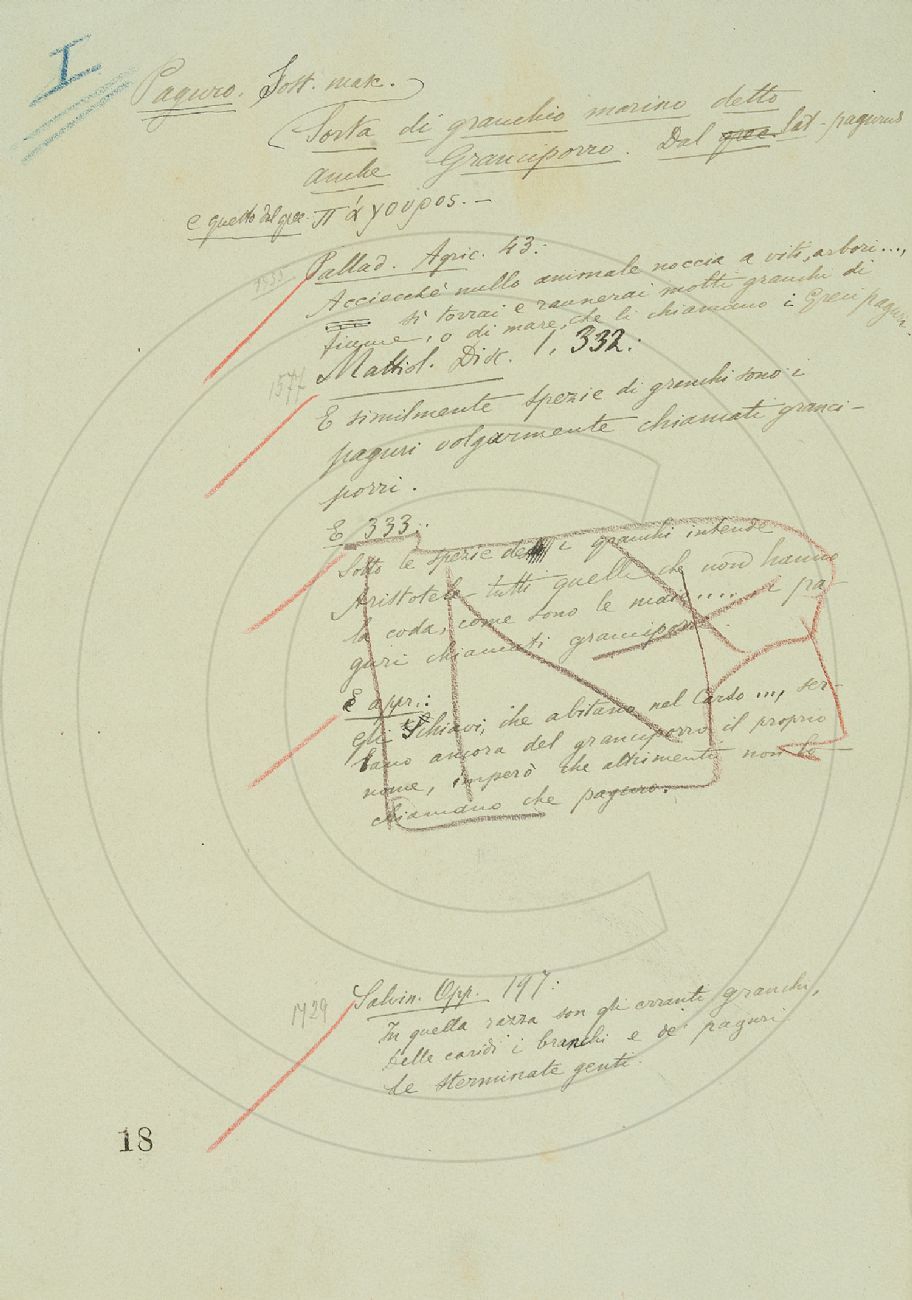 I
Paguro. Sost. mak.
Sorta di granchio marino detto
anche Granciporro. Dal grec. lat. pagurus
e questo dal grec. πάγουρος. —
Pallad. Agric. 43:
Acciocchè nullo animale noccia a viti, arbori...,
si torrai e raunerai molti granchi di
fiume, o di mare, che li chiamano i Greci paguri.
1577 Mattiol. Disc. 1, 332:
E similmente spezie di granchi sono i
paguri volgarmente chiamati granci-
porri.
E 333:
Sotto le spezie de i granchi intende
Aristotele tutti quelli che non hanno
la coda, come sono le maie..... i pa-
guri chiamati granciporri.
E appr.:
gli Schiavi, che abitano nel Carso ..., ser-
bano ancora del granciporro il proprio
nome, imperò che altrimenti non lo
chiamano che paguro.
1729 Salvin. Opp. 197:
In quella razza son gli erranti granchi,
Delle caridi i branchi e de' paguri
Le sterminate genti.
18